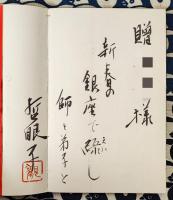 贈 ■■様
新春の
銀座で
師と弟子と
哲眼子